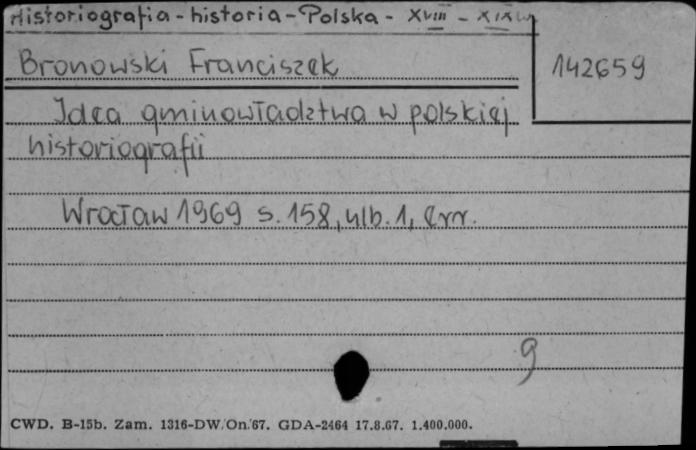 Historiografia - historia - Polska - XVIII - XIX w
Bronowski Franciszek
142659
Idea gminowładztwa w polskiej
historiografii
Wrocław 1969 s. 158, ulb. 1, err.
9
CWD. B-15b. Zam. 1316-DW/On/67. GDA-2464 17.8.67. 1.400.000.